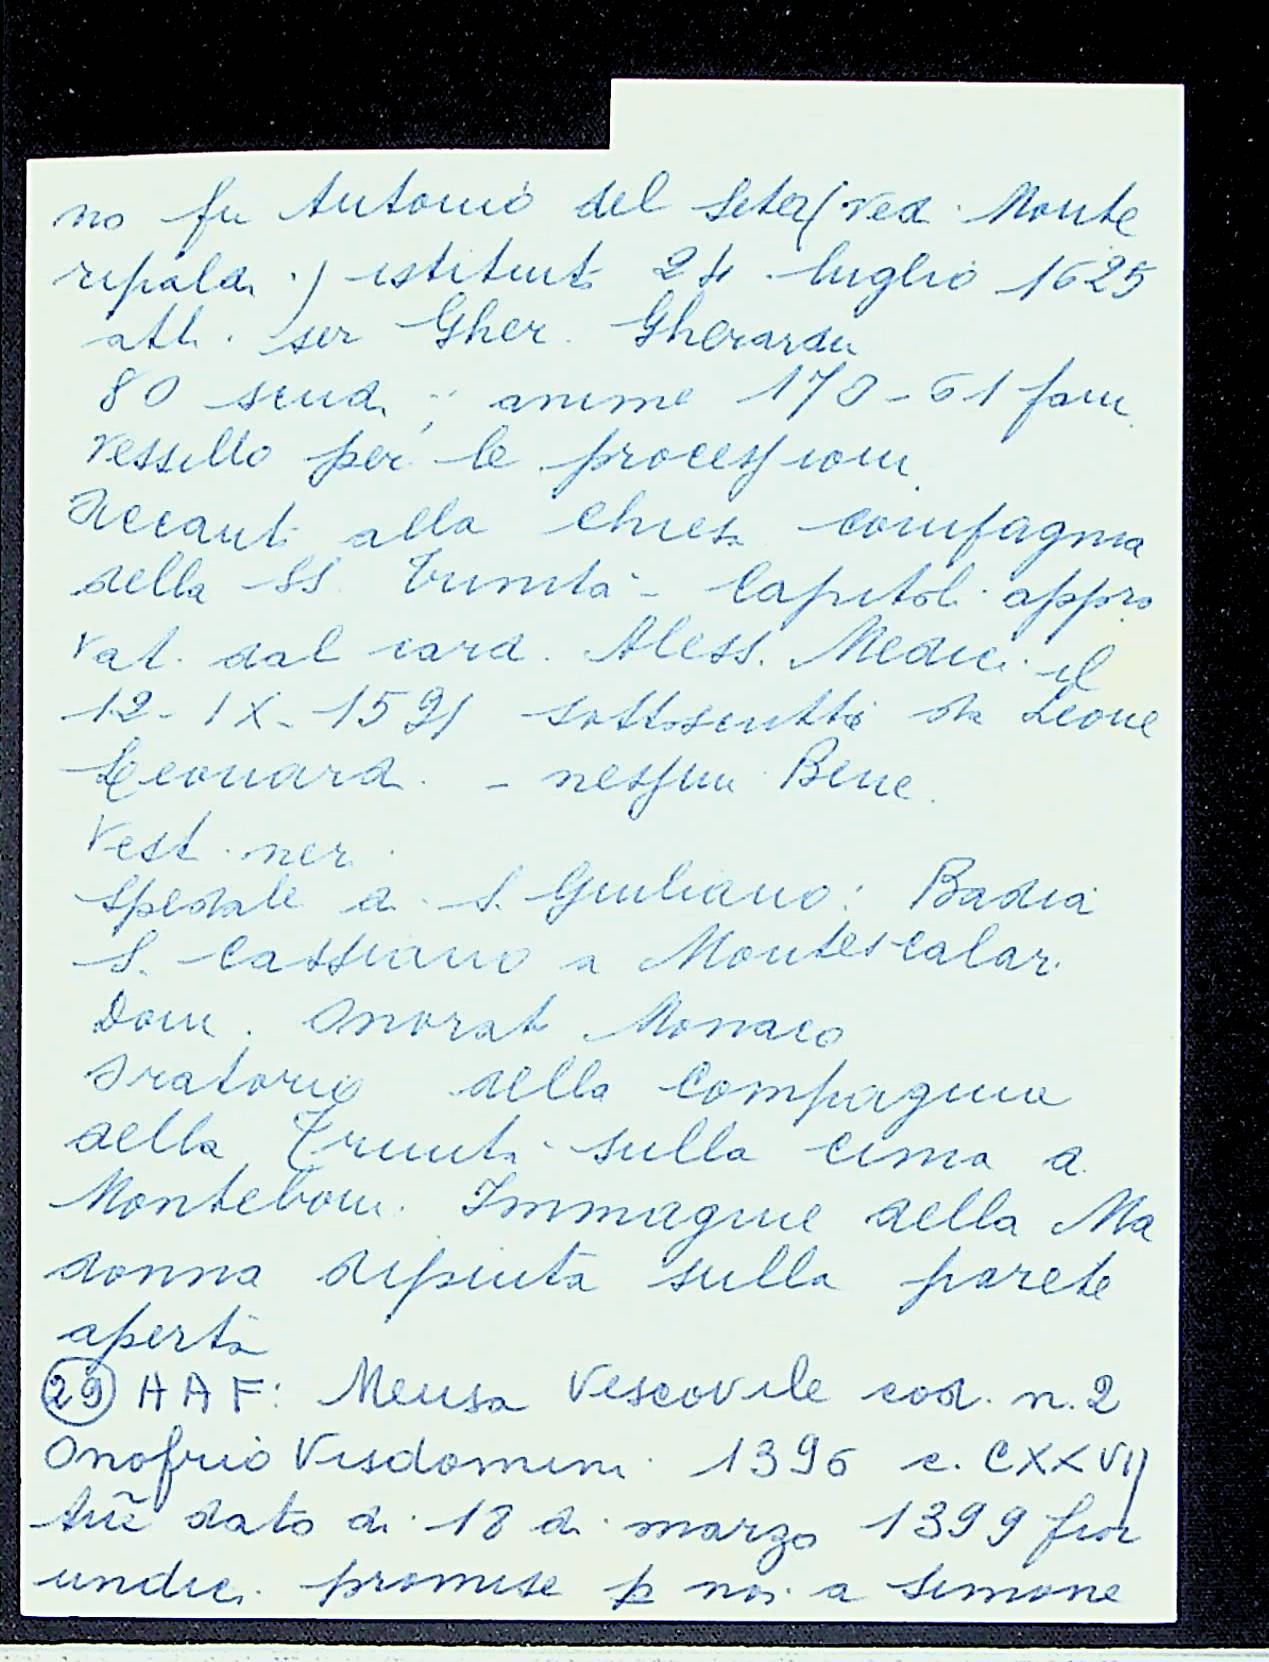 no fu Antonio del Seta (ved. Monte
ripaldi) istituit. 24 luglio 1625
att. ser Gher. Gherardi
80 scudi; anime 170 - 61 fam.
vessillo per le processioni.
Accanti alla chiesa compagnia
della SS. Trinità - Capitoli appro
vati dal card. Aless. Medici il
12 - IX - 1591 sottoscritti da Leone
Leonardi - nessun Bene.
Vesti neri
Spedale di S. Giuliano: Badia
S. Cassiano a Montescalari
Dom. Onorati Monaco
Oratorio della Compagnia
della Trinità sulla cima di
Monteboni. Immagine della Ma
donna dipinta sulla parete
aperta
29 A A F: Mensa Vescovile cod. n. 2
Onofrio Visdomini 1396 c. CXXVII
dato di 18 di marzo 1399 fior
undici promise p noi a Simone